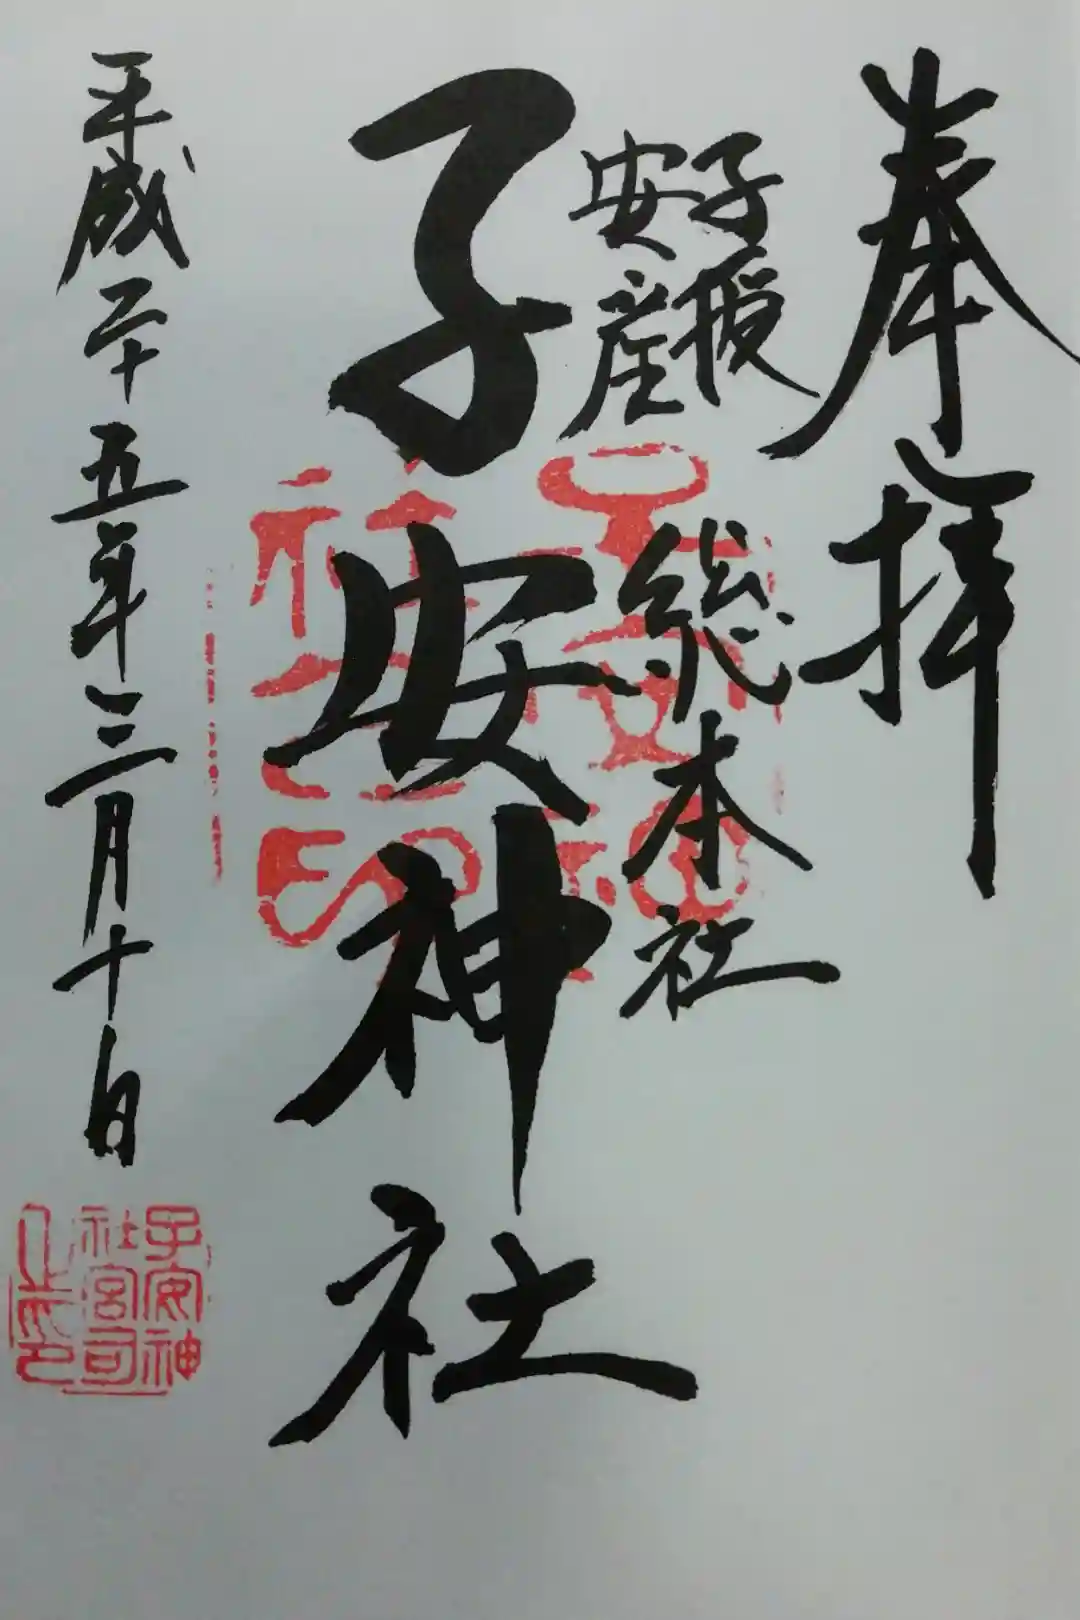 奉拝
子授
安産
総本社
子安神社
平成二十五年三月十日
子安神
社宮司